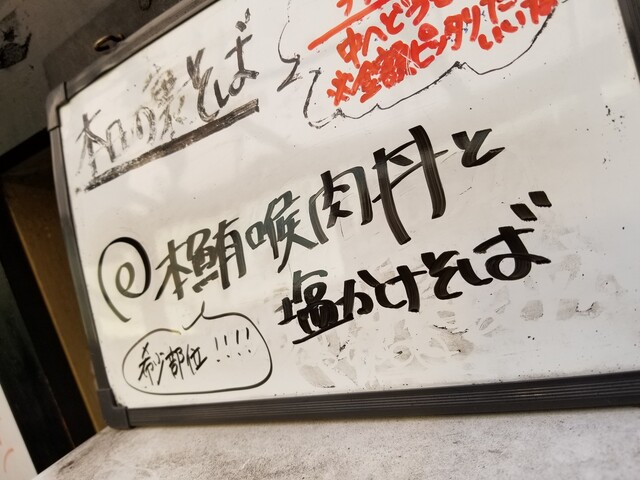 本日の裏そば
中へどうぞ
※金額ピッタリだと
いいな
@本鮪喉肉丼と
塩かけそば
希少部位!!!!